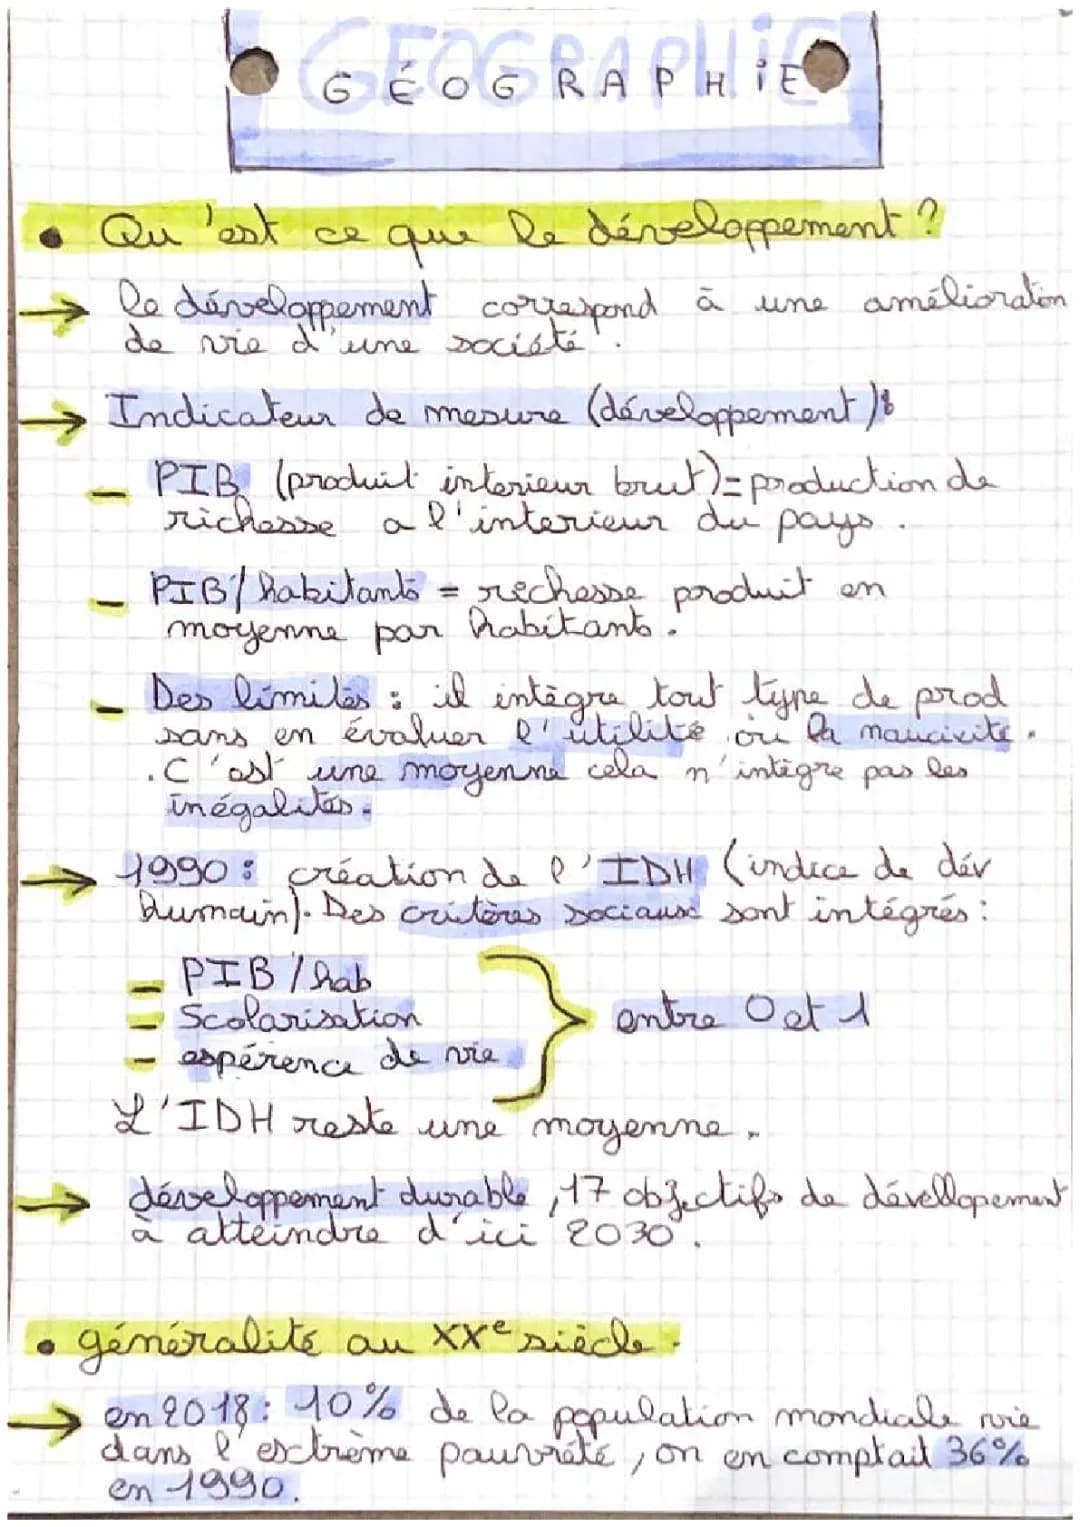 GÉOGRAPHIE
• Qu'est ce que le développement ?
→ le développement correspond à une amélioration
de vie d'une société.
→ Indicateur de mesure (développement):
- PIB (produit interieur brut) = production de
richesse a l'interieur du pays.
- PIB/habitants = richesse produit en
moyenne par habitants.
- Des limites : il intègre tout type de prod
sans en évaluer l'utilité ou la naucivite.
. C'est une moyenne cela n'intègre pas les
inégalités.
→ 1990 : création de l'IDH (indice de dév
humain). Des critères sociaux sont intégrés :
- PIB/hab
- Scolarisation
- espérence de vie
entre 0 et 1
L'IDH reste une moyenne.
→ développement durable, 17 objectifs de dévellopement
à atteindre d'ici 2030.
• généralité au XXe siècle.
→ en 2018 : 10% de la population mondiale vie
dans l'extrème pauvrété, on en comptait 36%
en 1990.